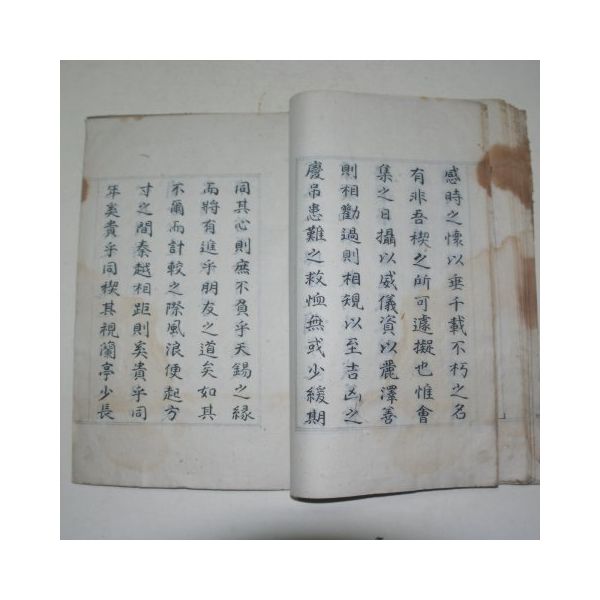 感時之懷以垂千載不朽之名
有非吾稧之所可遽擬也惟會
集之日攝以威儀資以麗澤善
則相勸過則相規以至吉凶之
慶吊患難之救恤無或少緩期
同其心則庶不負乎天錫之緣
而將有進乎朋友之道矣如其
不爾而計較之際風浪便起方
寸之間秦越相距則奚貴乎同
年奚貴乎同稧其視蘭亭少長